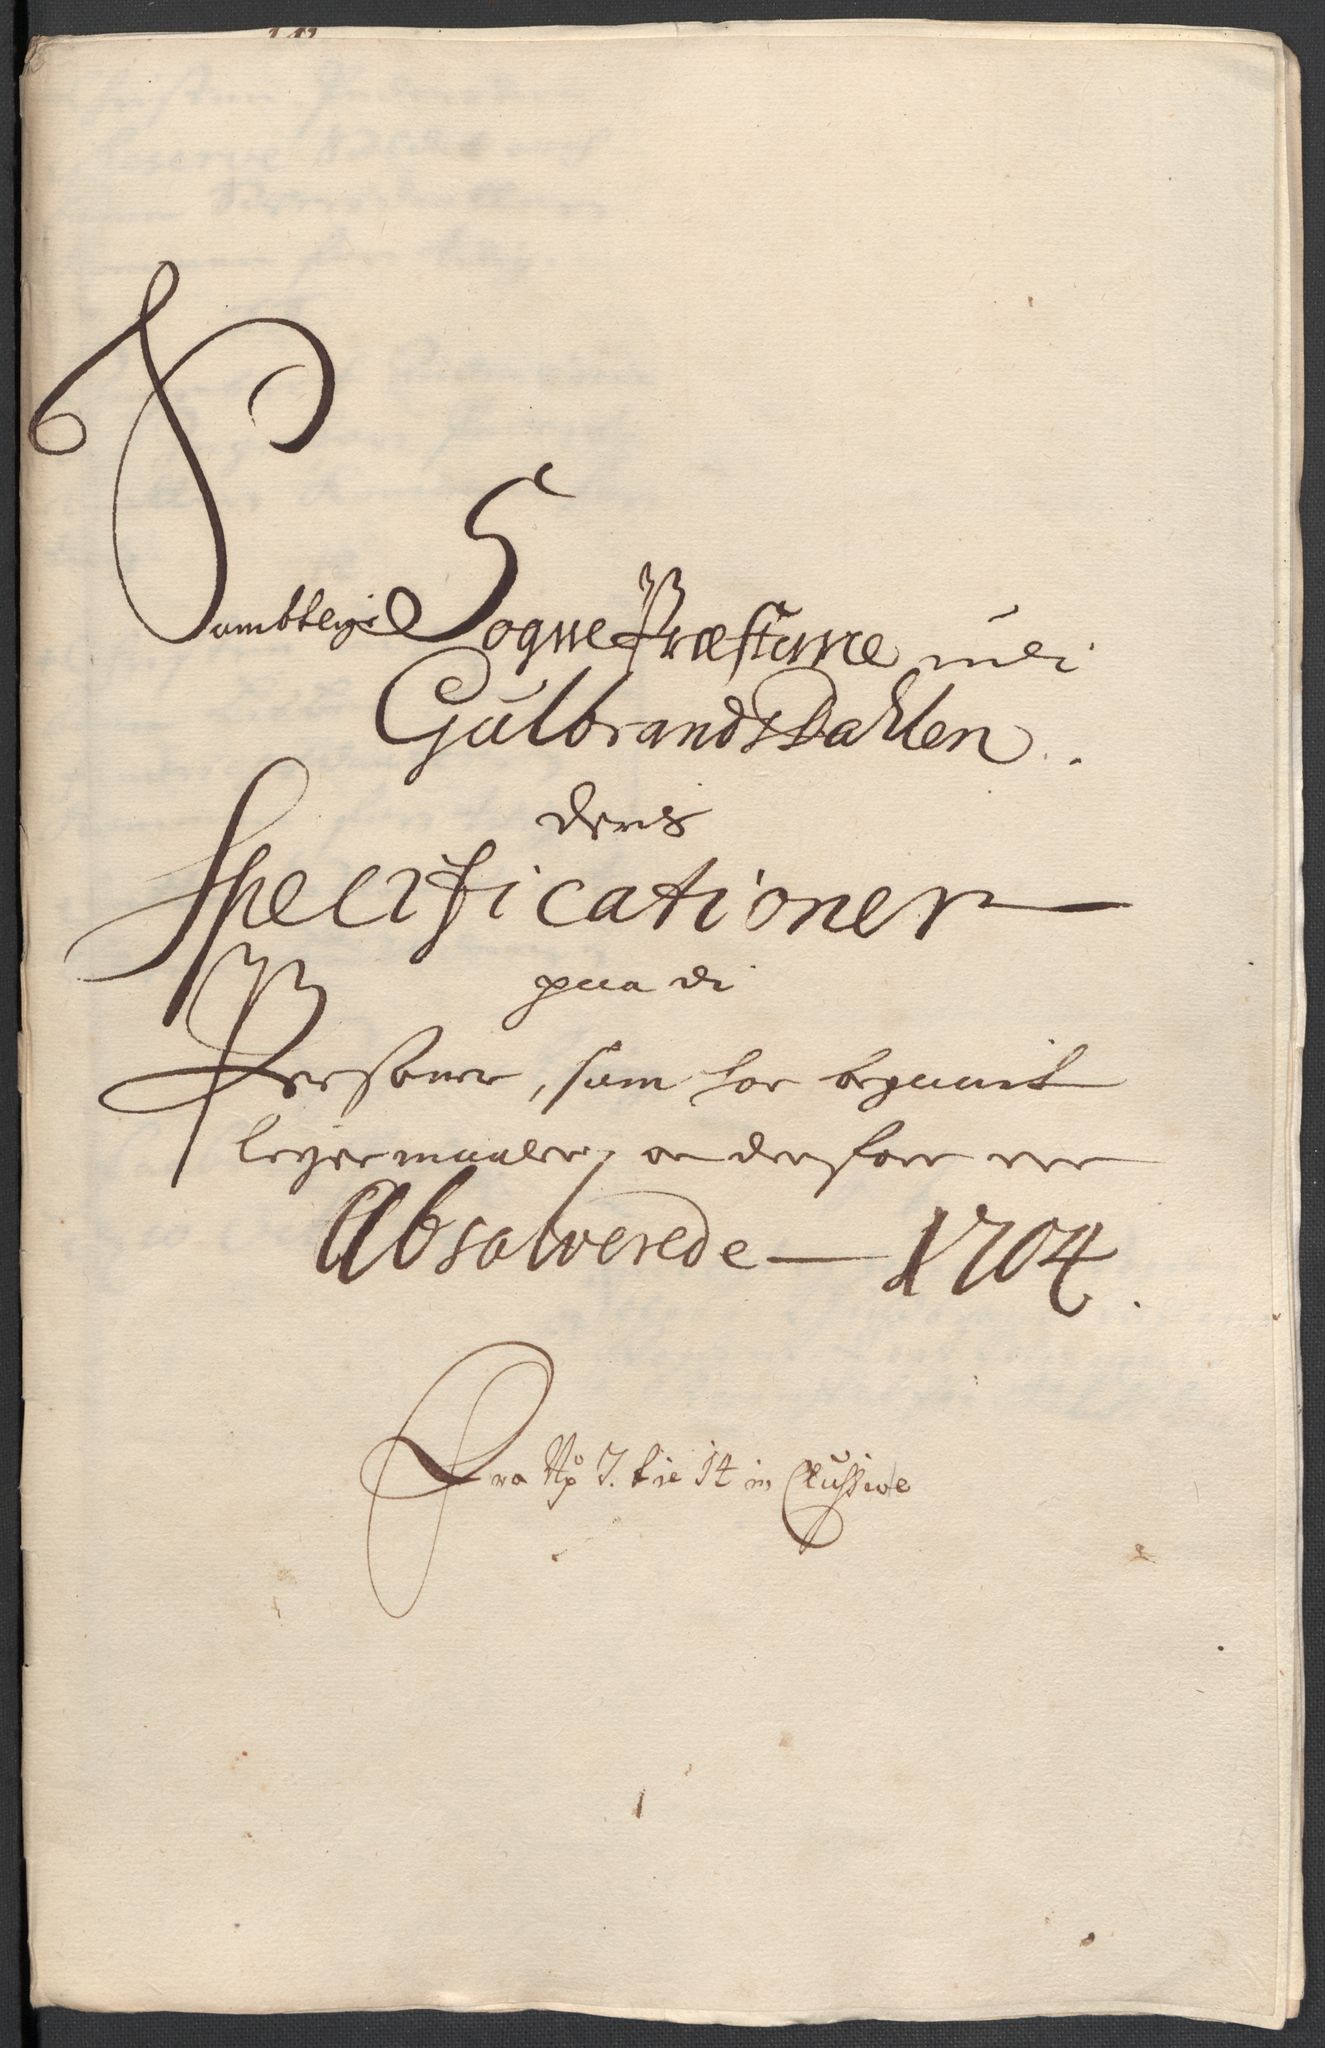 Sambtlige Sogne Præsterne udi
GulbrandsDahlen.
deris
Specificationer
paa di
Personer, som har begaaet
leyermaaler, oc derfore ere
Absolverede — 1704.
Fra No 7. til 14 in Clussive